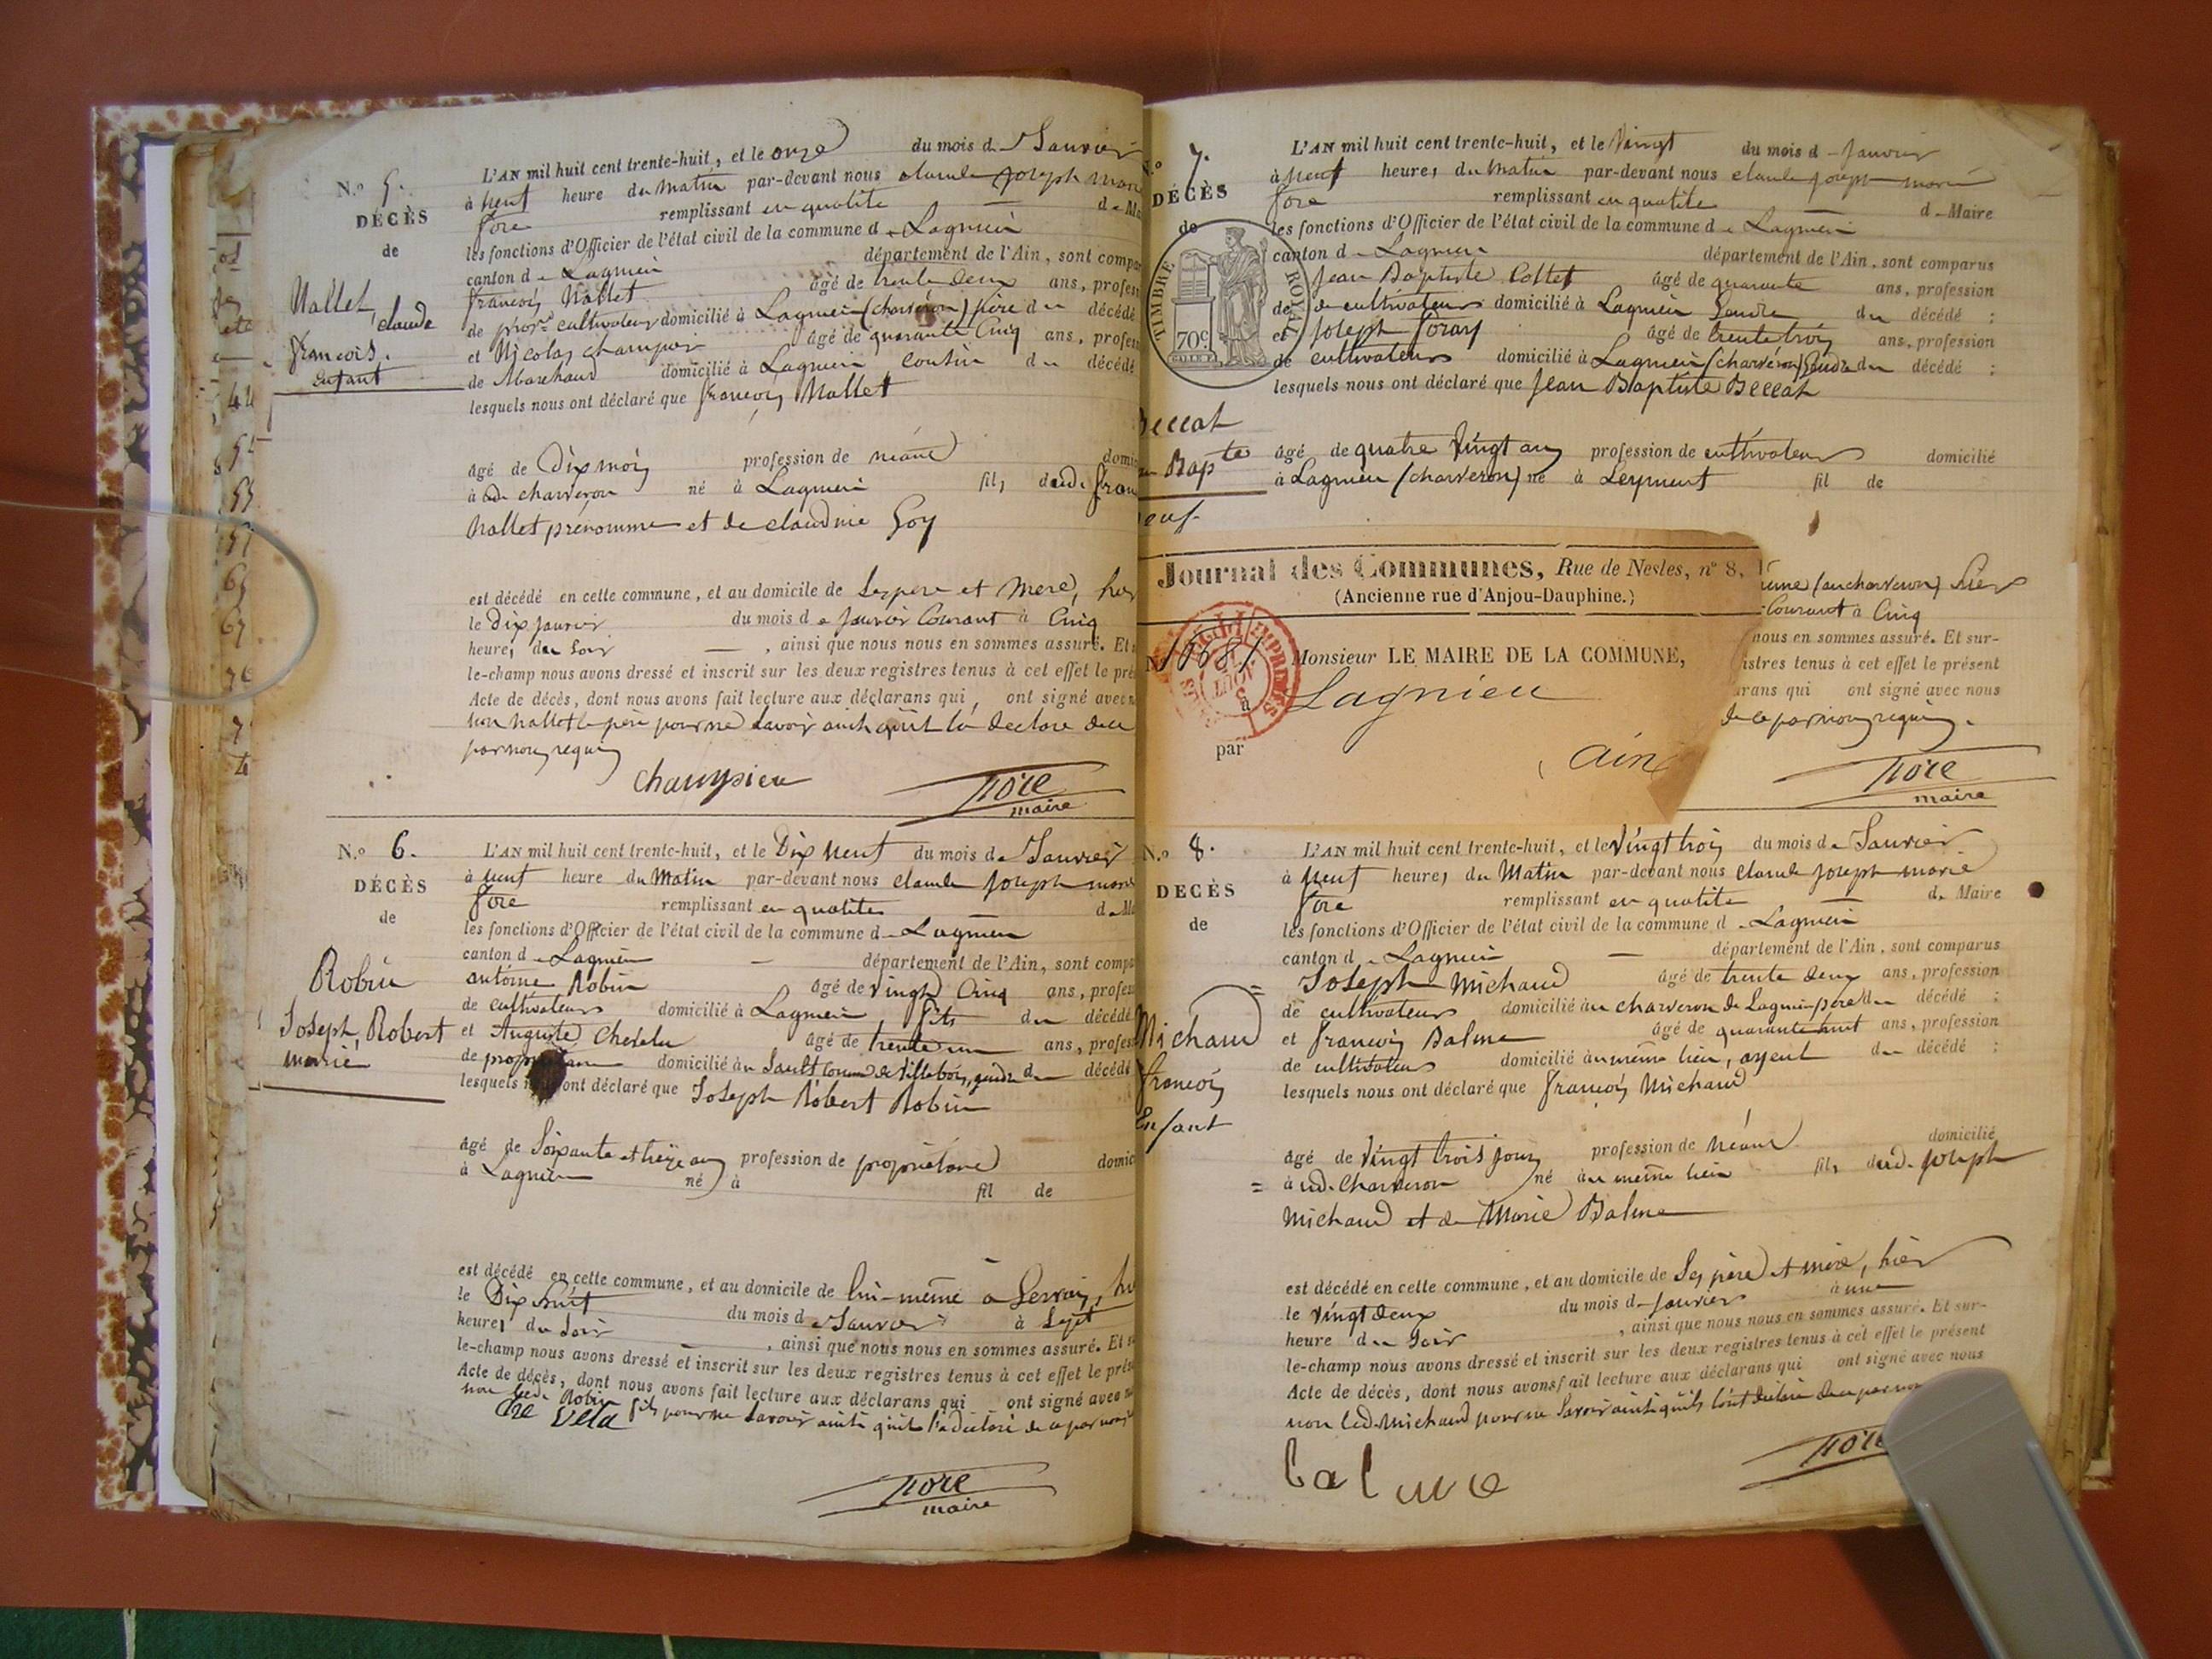 N.o 5.
DÉCÈS
de
Nallet,
claude
francois.
enfant
L'AN mil huit cent trente-huit, et le onze du mois de Janvier
à neuf heure du matin par-devant nous claude joseph marie
fore remplissant en qualité de Ma
les fonctions d'Officier de l'état civil de la commune de Lagnieu
canton de Lagnieu département de l'Ain, sont compa
françois Nallet âgé de trente deux ans, profess
de cultivateur domicilié à Lagnieu (charveron) père du décédé
et Nicolas champier âgé de quarante Cinq ans, profess
de Marchand domicilié à Lagnieu cousin du décédé
lesquels nous ont déclaré que françois Nallet
âgé de Dix mois profession de néant domic
à au charveron né à Lagnieu fils dud. fran
Nallet prénommé et de claudine Goy
est décédé en cette commune, et au domicile de ses père et mere, hier
le Dix janvier du mois de janvier Courant à Cinq
heures du soir — , ainsi que nous nous en sommes assuré. Et s
le-champ nous avons dressé et inscrit sur les deux registres tenus à cet effet le pré
Acte de décès, dont nous avons fait lecture aux déclarans qui ont signé avec n
non nallet le père pour ne savoir ainsi qu'il la declaré de ce
par nous requis
champier
fore
maire
N.o 6.
DÉCÈS
de
Robin
Joseph, Robert
marie
L'AN mil huit cent trente-huit, et le Dix neuf du mois de Janvier
à neuf heure du Matin par-devant nous claude joseph marie
fore remplissant en qualité de Ma
les fonctions d'Officier de l'état civil de la commune de Lagnieu
canton de Lagnieu — département de l'Ain, sont compa
antoine Robin âgé de vingt Cinq ans, profess
de cultivateur domicilié à Lagnieu fils du décédé
et Auguste âgé de trente un ans, profess
de domicilié au Sault comm de Villebois, gendre du décédé
lesquels nous ont déclaré que Joseph Robert Robin
âgé de Soixante et treize ans profession de propriétaire domic
à Lagnieu né à fil de
est décédé en cette commune, et au domicile de lui-même à hier
le Dix huit du mois de Janvier à Sept
heures du Soir — , ainsi que nous nous en sommes assuré. Et s
le-champ nous avons dressé et inscrit sur les deux registres tenus à cet effet le prés
Acte de décès, dont nous avons fait lecture aux déclarans qui ont signé avec n
non led. Robin fils pour ne savoir ainsi qu'il l'a declaré de ce par nous
fore
maire
N.o 7.
DÉCÈS
de
TIMBRE ROYAL
70c
Beccat
Bapte
L'AN mil huit cent trente-huit, et le Vingt du mois de Janvier
à neuf heures du matin par-devant nous claude joseph marie
fore remplissant en qualité — de Maire
les fonctions d'Officier de l'état civil de la commune de Lagnieu
canton de Lagnieu département de l'Ain, sont comparus
Jean Baptiste Collet âgé de quarante ans, profession
de cultivateur domicilié à Lagnieu Gendre du décédé :
et joseph foray âgé de trente trois ans, profession
de cultivateur domicilié à Lagnieu (charveron) gendre du décédé ;
lesquels nous ont déclaré que Jean Baptiste Beccat
âgé de quatre Vingt ans profession de cultivateur domicilié
à Lagnieu (charveron) né à Leyment fil de
Journal des Communes, Rue de Nesles, n° 8,
(Ancienne rue d'Anjou-Dauphine.)
Monsieur LE MAIRE DE LA COMMUNE,
à Lagnieu
par
ain
(au charveron) hier
Courant à Cinq
nous en sommes assuré. Et sur-
istres tenus à cet effet le présent
arans qui ont signé avec nous
de ce par nous requis.
fore
maire
N.o 8.
DÉCÈS
de
Michaud
françois
Enfant
L'AN mil huit cent trente-huit, et le Vingt trois du mois de Janvier
à neuf heures du Matin par-devant nous claude joseph marie
fore remplissant en qualité — de Maire
les fonctions d'Officier de l'état civil de la commune de Lagnieu
canton de Lagnieu — département de l'Ain, sont comparus
Joseph Michaud âgé de trente deux ans, profession
de cultivateur domicilié au charveron de Lagnieu père du décédé ;
et françois Balme âgé de quarante huit ans, profession
de cultivateur domicilié au même lieu, ayeul du décédé ;
lesquels nous ont déclaré que françois Michaud
âgé de vingt trois jours profession de néant domicilié
= à ud. Charveron né au même lieu fils dud. joseph
Michaud et de Marie Balme
est décédé en cette commune, et au domicile de ses père et mère, hier
le vingt deux du mois de janvier à une
heure du Soir , ainsi que nous nous en sommes assuré. Et sur-
le-champ nous avons dressé et inscrit sur les deux registres tenus à cet effet le présent
Acte de décès, dont nous avons fait lecture aux déclarans qui ont signé avec nous
non led. Michaud pour ne Savoir ainsi qu'ils l'ont declaré de ce par nou
balme
fore